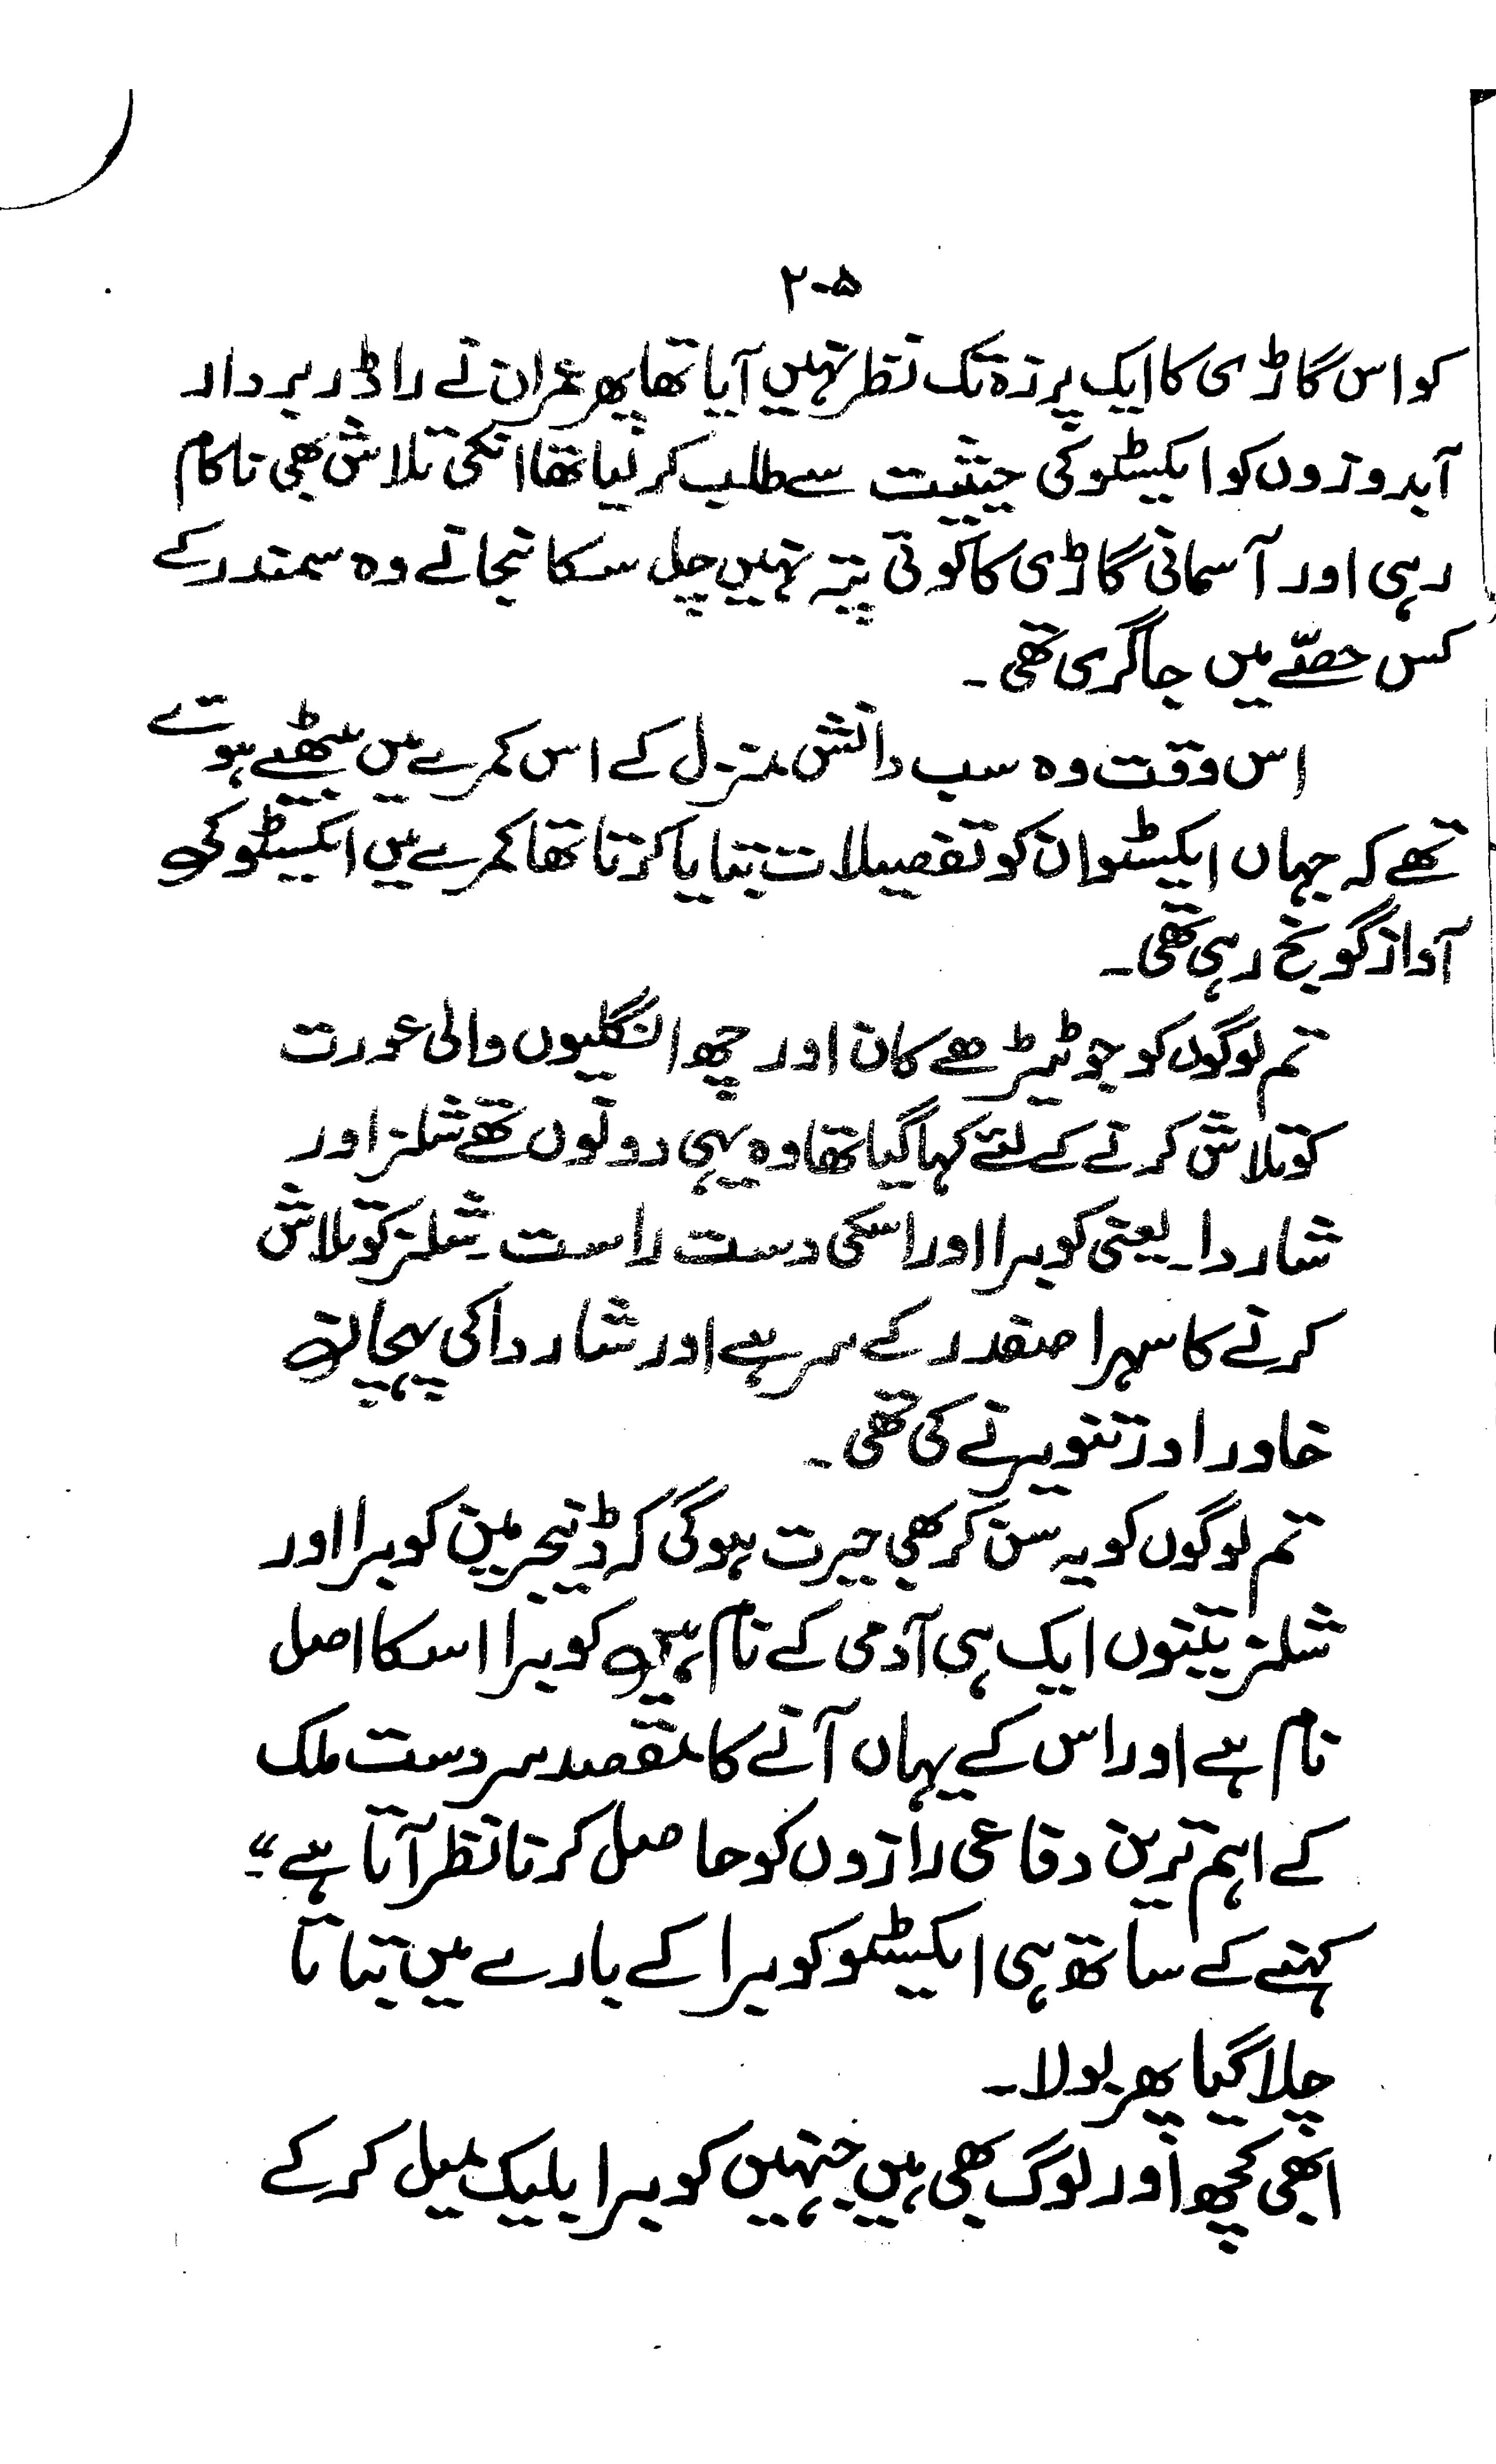 ۲۰۵
کو اس گاڑی کا ایک پرزہ تک نظر نہیں آیا تھا پھر عمران نے راڈر بردار
آبدوزوں کو ایکسٹو کی حیثیت سے طلب کر لیا تھا انکی تلاش بھی ناکام
رہی اور آسمانی گاڑی کا کوئی پتہ نہیں چل سکا نجانے وہ سمندر کے
کس حصّے میں جا گری تھی۔
اس وقت وہ سب دانش منزل کے اس کمرے میں بیٹھے ہوئے
تھے کہ جہاں ایکسٹو ان کو تفصیلات بتایا کرتا تھا کمرے میں ایکسٹو کی
آواز گونج رہی تھی۔
تم لوگوں کو جو ٹیڑھے کان اور چھ انگلیوں والی عورت
کو تلاش کرنے کے لئے کہا گیا تھا وہ یہی دونوں تھے شلز اور
شاردا۔ یعنی کوبرا اور اسکی دست راست۔ شلز کو تلاش
کرنے کا سہرا صفدر کے سر ہے اور شاردا کی پہچان
خاور اور تنویر نے کی تھی۔
تم لوگوں کو یہ سن کر بھی حیرت ہوگی کہ ڈینجر مین کوبرا اور
شلز تینوں ایک ہی آدمی کے نام ہیں کوبرا اسکا اصل
نام ہے اور اس کے یہاں آنے کا مقصد سردست ملک
کے اہم ترین دفاعی رازوں کو حاصل کرنا نظر آتا ہے۔“
کہنے کے ساتھ ہی ایکسٹو کوبرا کے بارے میں بتاتا
چلا گیا پھر بولا۔
ابھی کچھ اور لوگ بھی ہیں جنہیں کوبرا بلیک میل کر کے